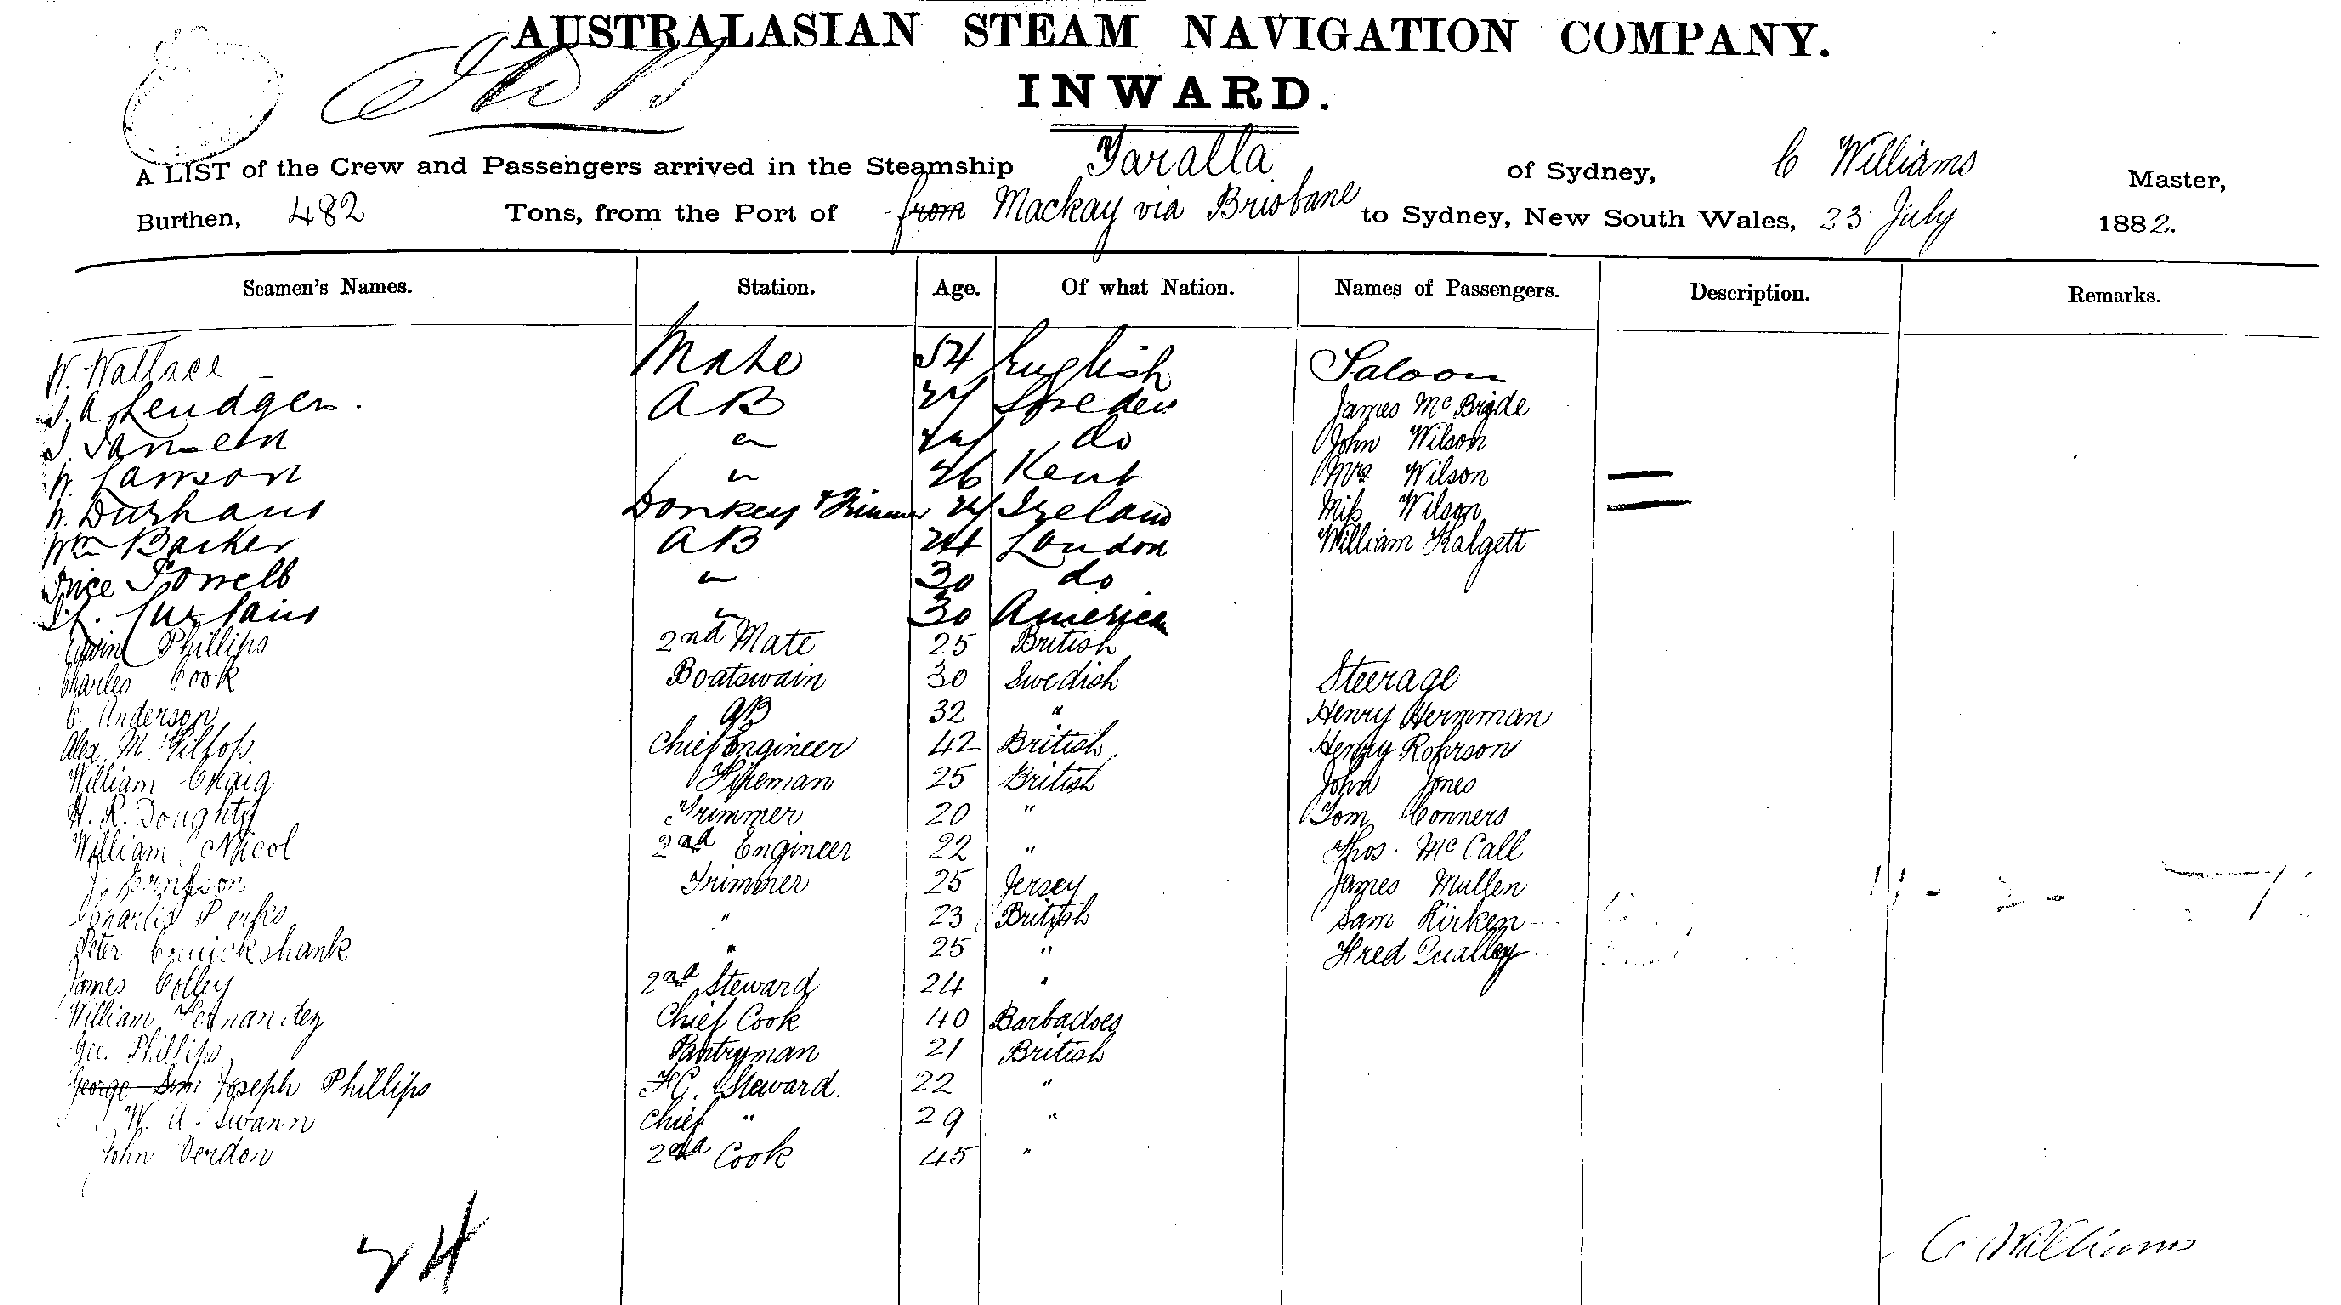 AUSTRALASIAN STEAM NAVIGATION COMPANY.
INWARD.
A LIST of the Crew and Passengers arrived in the Steamship Taralla of Sydney, C Williams Master,
Burthen, 482 Tons, from the Port of from Mackay via Brisbane to Sydney, New South Wales, 23 July 1882.
Seamen's Names. Station. Age. Of what Nation. Names of Passengers. Description. Remarks.
W. Wallace Mate 54 English Saloon
AB Sweden James McBride
" do John Wilson
Lawson " 26 Kent Mrs Wilson
Donkey & Trimmer Ireland Miss Wilson
Wm Barker AB 24 London William
Price Powell " 30 do
" 30 American
Phillips 2nd Mate 25 British
Charles Cook Boatswain 30 Swedish Steerage
C. Anderson AB 32 " Henry Hermman
Alex M. Chief Engineer 42 British Henry
William Craig Fireman 25 British John Jones
H. R. Doughty Trimmer 20 " Tom Conners
William Nicol 2nd Engineer 22 " Thos. McCall
Trimmer 25 Jersey James Mullen
Charles " 23 British Sam Kirken
Peter Cruickshank " 25 " Fred Qualley
James Colley 2nd Steward 24 "
William Fernandez Chief Cook 40 Barbadoes
Geo. Phillips Pantryman 21 British
George Sim Joseph Phillips F.C. Steward 22 "
W. A. Swann Chief " 29 "
John Verdon 2nd Cook 45 "
24 C Williams